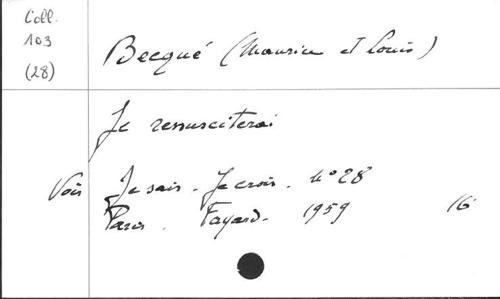 Coll.
103
(28)
Becqué (Maurice et Louis)
Je ressusciterai
Voir Je sais. Je crois. N° 28
Paris. Fayard. 1959 16